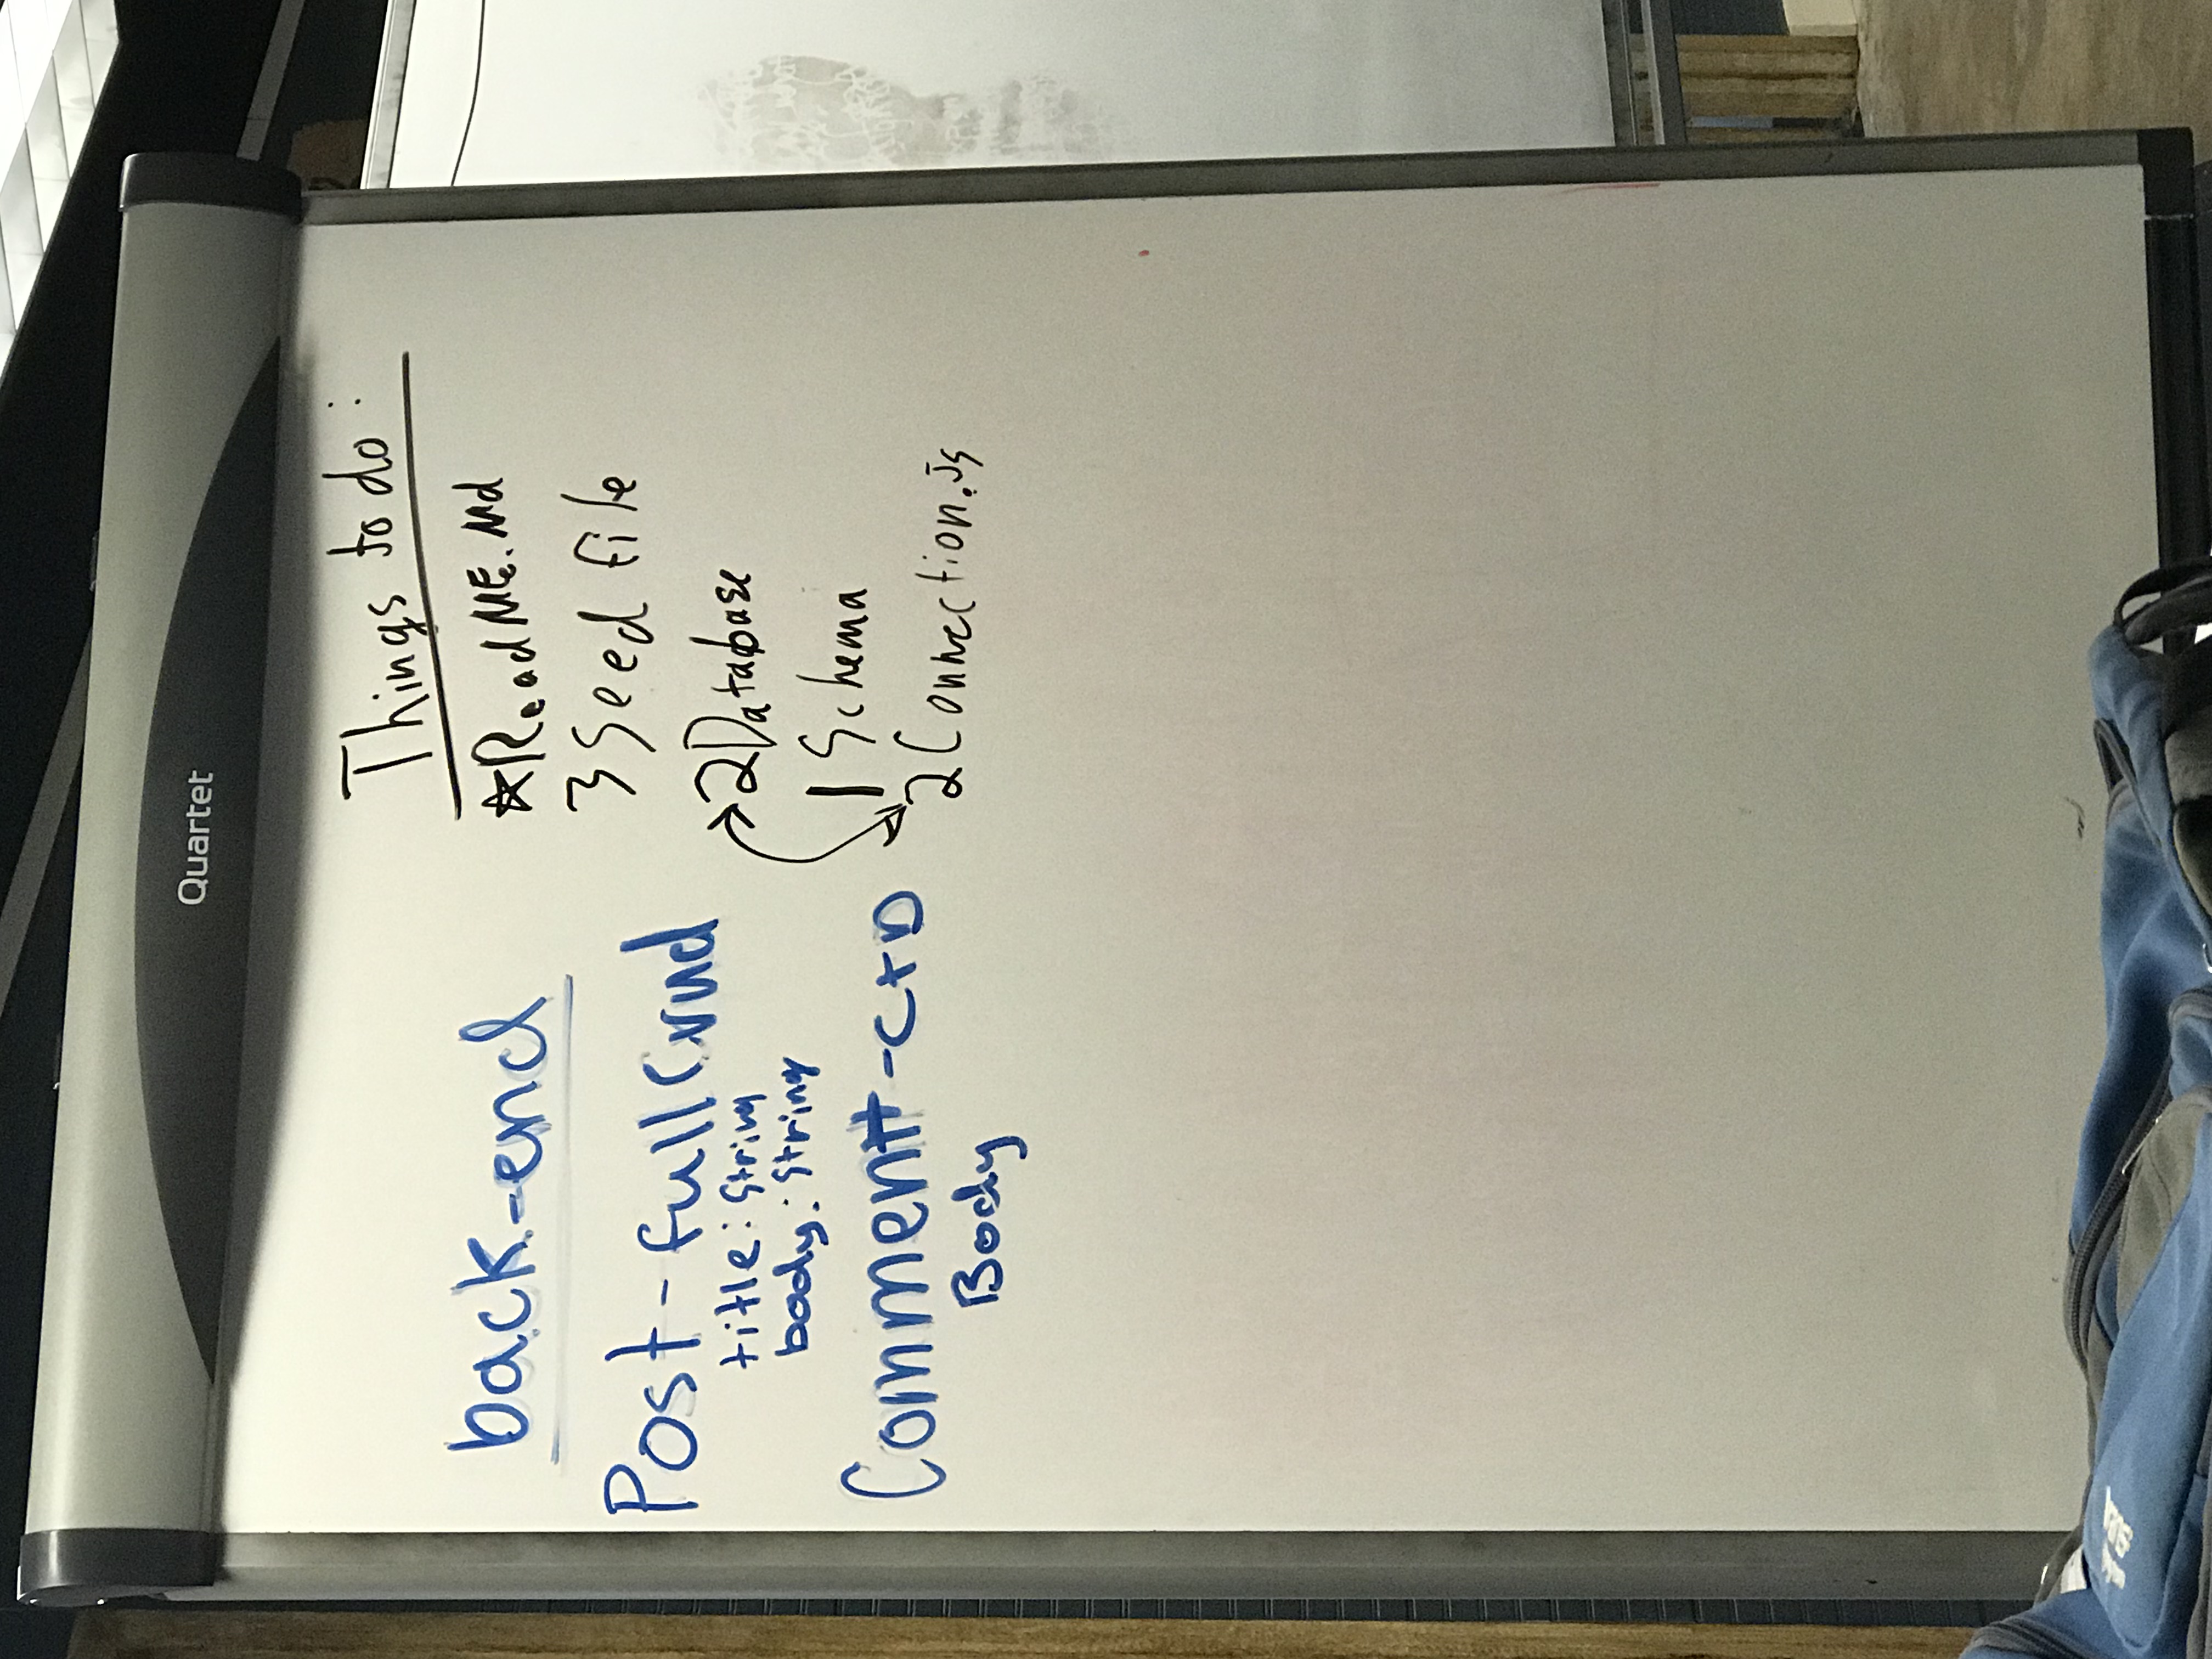 Quartet
back-end
Post - full Crud
title: String
body: String
Comment - C + D
Body
Things to do:
☆ ReadME.Md
3 Seed file
2 Database
1 Schema
2 Connection.js